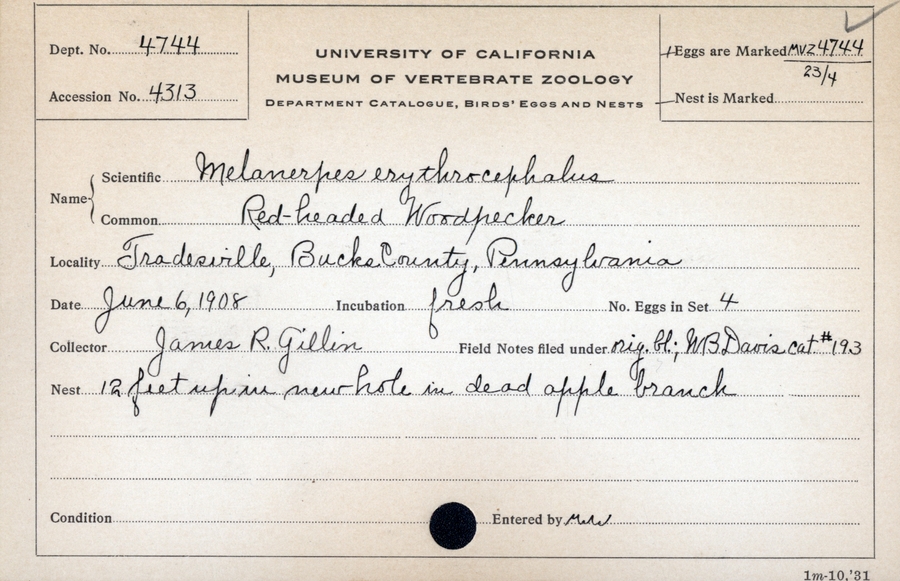 Dept. No. 4744
Accession No. 4313
UNIVERSITY OF CALIFORNIA
MUSEUM OF VERTEBRATE ZOOLOGY
DEPARTMENT CATALOGUE, BIRDS' EGGS AND NESTS
Eggs are Marked MVZ 4744
23/4
Nest is Marked
Name
Scientific Melanerpes erythrocephalus
Common Red-headed Woodpecker
Locality Tradesville, Bucks County, Pennsylvania
Date June 6, 1908 Incubation fresh No. Eggs in Set 4
Collector James R. Gillin Field Notes filed under orig. bl.; WB Davis cat #193
Nest 12 feet up in new hole in dead apple branch
Condition Entered by
1m-10,'31